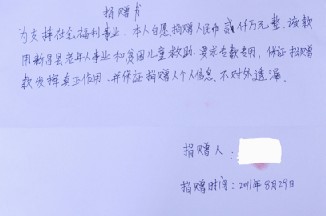 捐赠书
为支持社会福利事业,本人自愿捐赠人民币贰仟万元整,该款
用新昌县老年人事业和贫困儿童救助。要求专款专用,保证捐赠
款发挥真正作用,并保证捐赠人个人信息,不对外透漏。
捐赠人:
捐赠时间:2011年8月29日